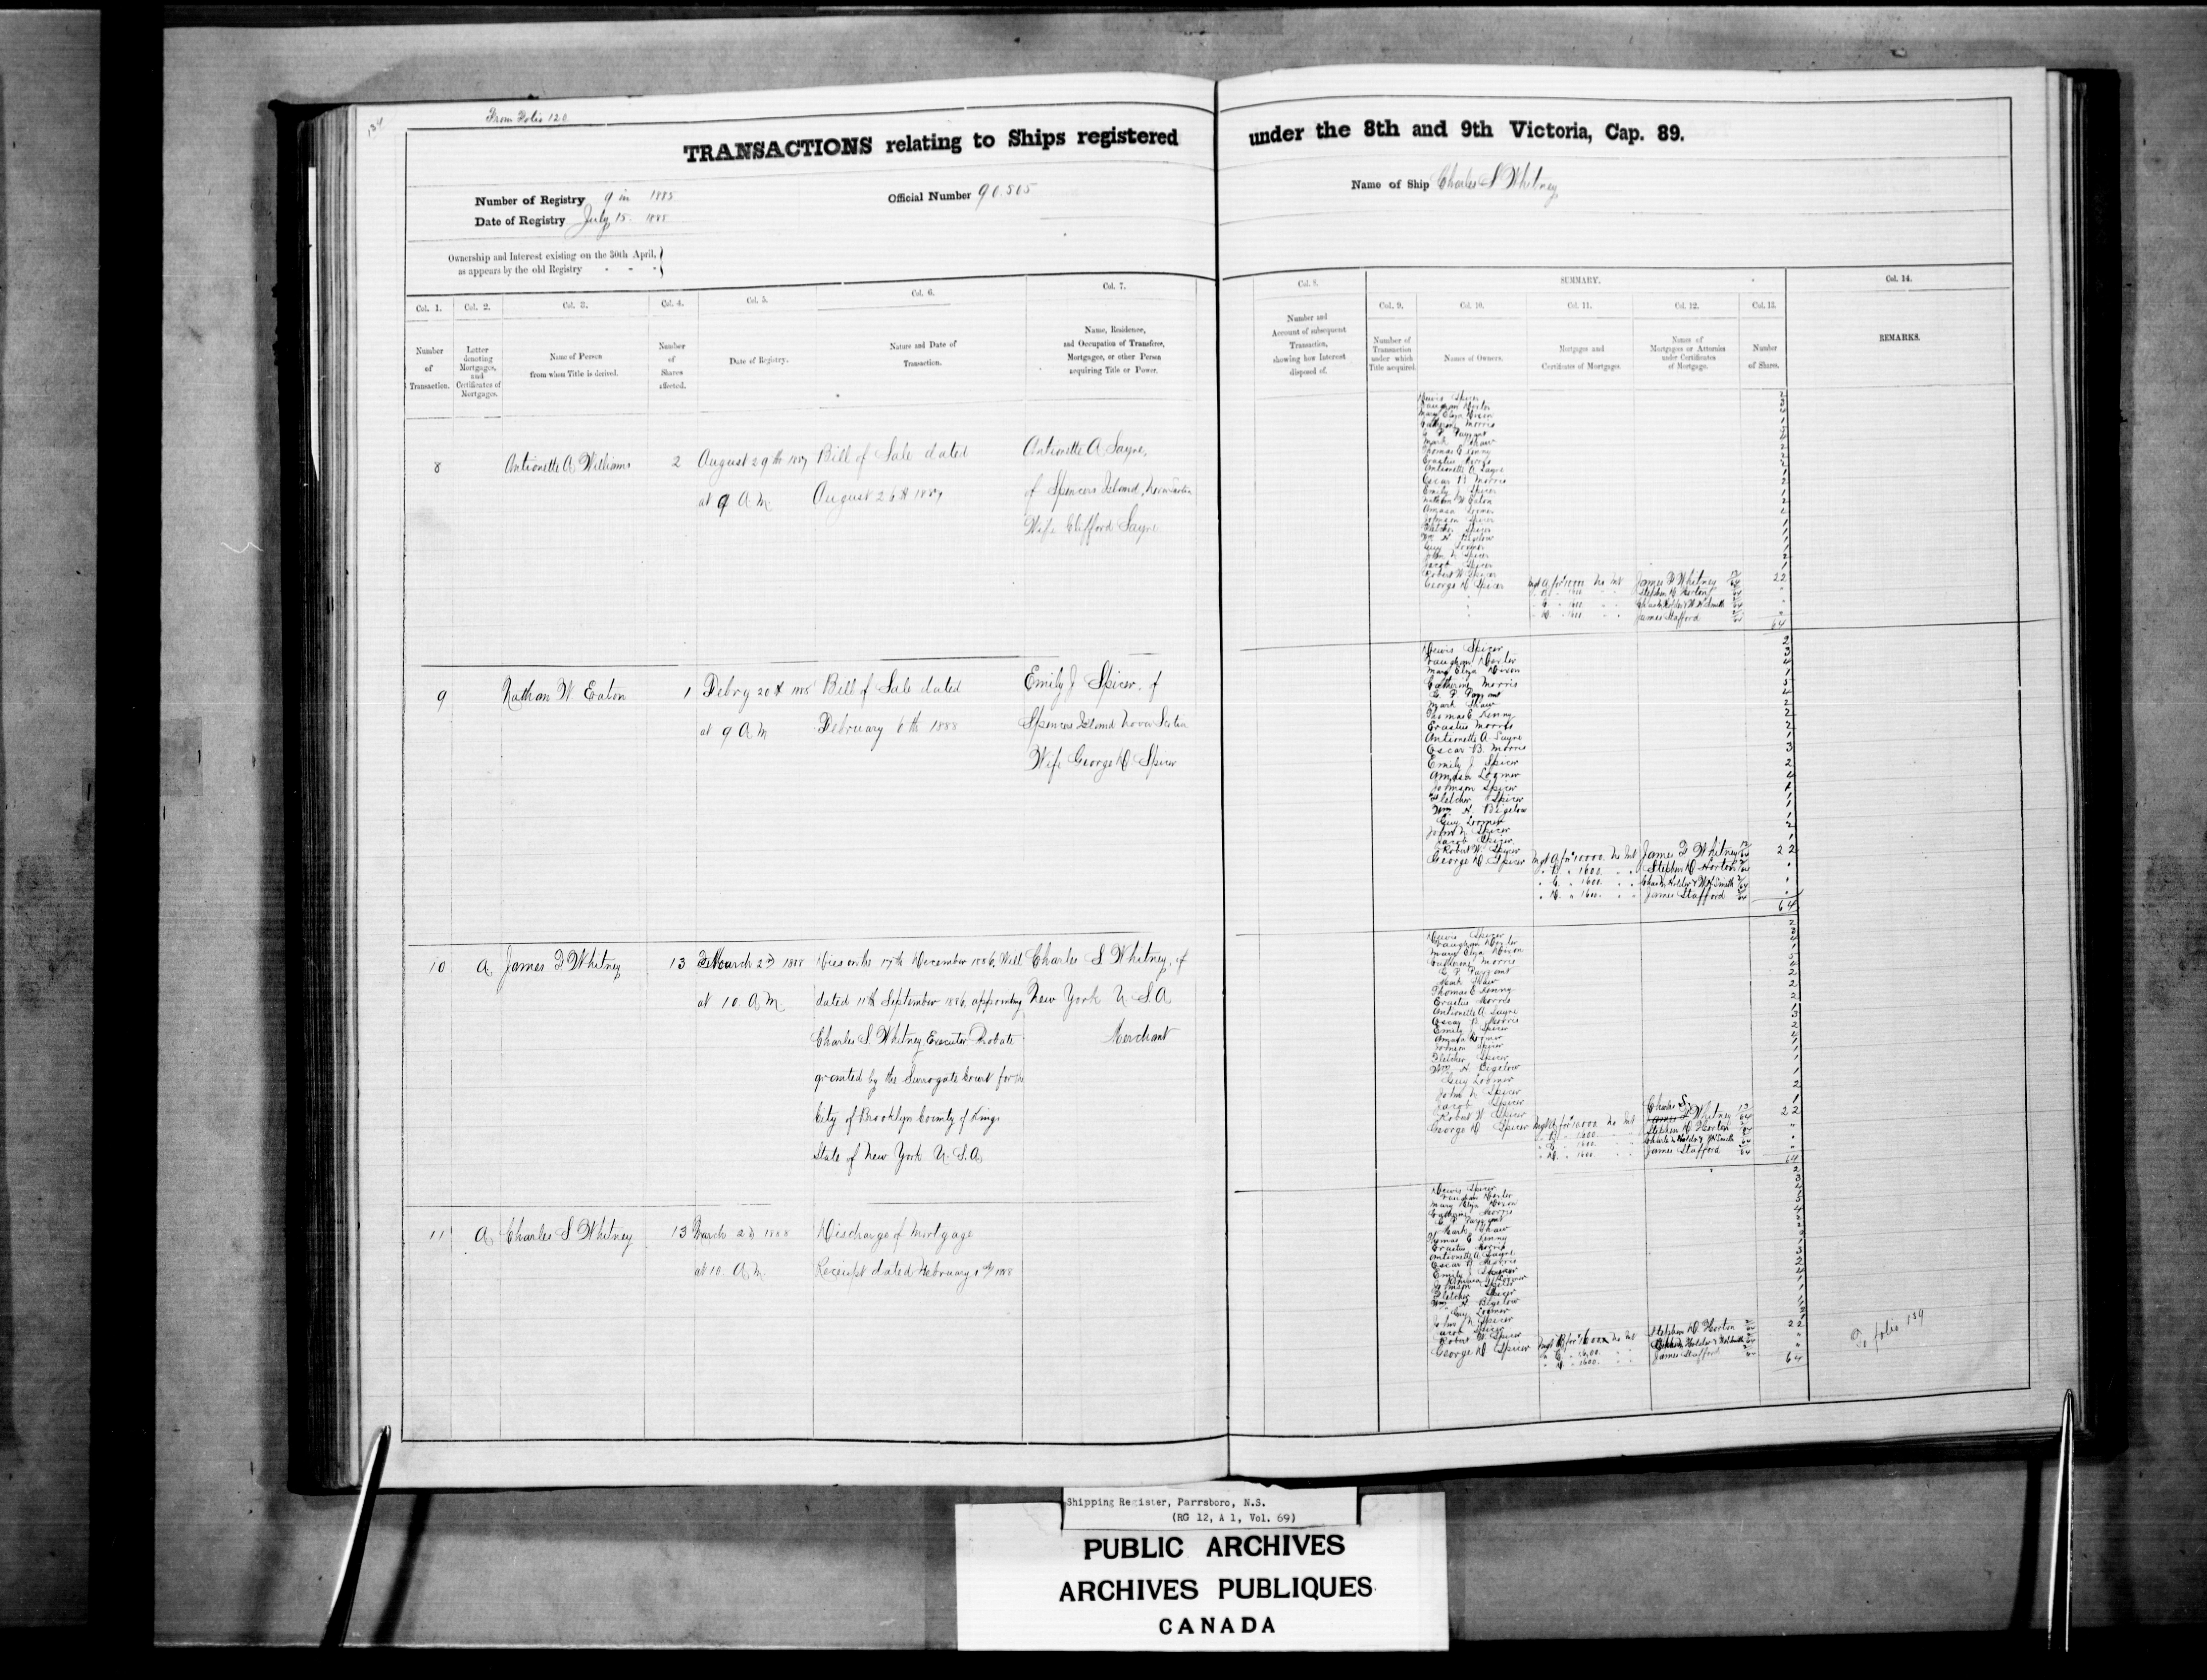 134
From Folio 120
TRANSACTIONS relating to Ships registered under the 8th and 9th Victoria, Cap. 89.
Number of Registry 9 in 1885
Date of Registry July 15. 1885
Official Number 90.505
Name of Ship Charles S Whitney
Ownership and Interest existing on the 30th April,
as appears by the old Registry - - -
Col. 1.
Number
of
Transaction.
Col. 2.
Letter
denoting
Mortgages,
and
Certificates of
Mortgages.
Col. 3.
Name of Person
from whom Title is derived.
Col. 4.
Number
of
Shares
affected.
Col. 5.
Date of Registry.
Col. 6.
Nature and Date of
Transaction.
Col. 7.
Name, Residence,
and Occupation of Transferee,
Mortgagee, or other Person
acquiring Title or Power.
Col. 8.
Number and
Account of subsequent
Transaction,
showing how Interest
disposed of.
SUMMARY.
Col. 9.
Number of
Transaction
under which
Title acquired.
Col. 10.
Names of Owners.
Col. 11.
Mortgages and
Certificates of Mortgages.
Col. 12.
Names of
Mortgagees or Attornies
under Certificates
of Mortgage.
Col. 13.
Number
of Shares.
Col. 14.
REMARKS.
8
Antionette A Williams
2
August 29th 1887
at 9 A M
Bill of Sale dated
August 26th 1887
Antionette A Sayre,
of Spencers Island, Nova Scotia
Wife Clifford Sayre
Mary Eliza Dixon
Catherine Morris
Mark Shaw
Thomas E Kenny
Erastus Morris
Antionette A Sayre
Oscar B Morris
Emily J Spicer
Nathan W Eaton
Amasa Loomer
Johnson Spicer
Fletcher Spicer
Wm H Bigelow
Guy Loomer
John N Spicer
Jacob Spicer
Robert W Spicer
George D Spicer
James F Whitney
22
Stephen D Horton
James Stafford
64
9
Nathan W Eaton
1
Febry 20th 1888
at 9 A M
Bill of Sale dated
February 6th 1888
Emily J Spicer, of
Spencers Island Nova Scotia
Wife George D Spicer
Dewis Spicer 2
Mary Eliza Dixon
Catherine Morris
Mark Shaw
Thomas E Kenny
Erastus Morris
Antionette A. Sayre
Oscar B. Morris
Emily J Spicer
Amasa Loomer
Johnson Spicer
Fletcher Spicer
Wm H. Bigelow
Guy Loomer
John N Spicer
Jacob Spicer
Robert W. Spicer
George D. Spicer Mgt A for 10000. James F Whitney
22
" B " 1600. Stephen D Horton
" C. " 1600.
" D. " 1600. James Stafford
64
10
A
James F Whitney
13
March 2d 1888
at 10. A M
Dies on the 17th December 1886. Will
dated 11th September 1886, appointing
Charles S. Whitney Executor Probate
granted by the Surrogate Court for the
City of Brooklyn County of Kings
State of New York U. S. A
Charles S Whitney, of
New York U S. A
Merchant
Dewis Spicer
Mary Eliza Dixon
Catherine Morris
Mark Shaw
Thomas E Kenny
Erastus Morris
Antionette A. Sayre
Oscar B Morris
Emily J Spicer
Amasa Loomer
Johnson Spicer
Fletcher Spicer
Wm H. Bigelow
Guy Loomer
John N Spicer
Jacob Spicer
Robert W Spicer
Charles S.
George D Spicer Whitney
22
Stephen D Horton
James Stafford
64
11
A
Charles S Whitney
13
March 2d 1888
at 10. A M.
Discharge of Mortgage
Receipt dated February 1st 1888
Dewis Spicer
Mary Eliza Dixon
Catherine Morris
Mark Shaw
Thomas E Kenny
Erastus Morris
Antionette A Sayre
Oscar B Morris
Emily J Spicer
Johnson Spicer
Fletcher Spicer
Wm H. Bigelow
Guy Loomer
John N Spicer
Jacob Spicer
Robert W Spicer
George D Spicer
Stephen D Horton
22
James Stafford
64
To folio 139
Shipping Register, Parrsboro, N.S.
(RG 12, A 1, Vol. 69)
PUBLIC ARCHIVES
ARCHIVES PUBLIQUES
CANADA